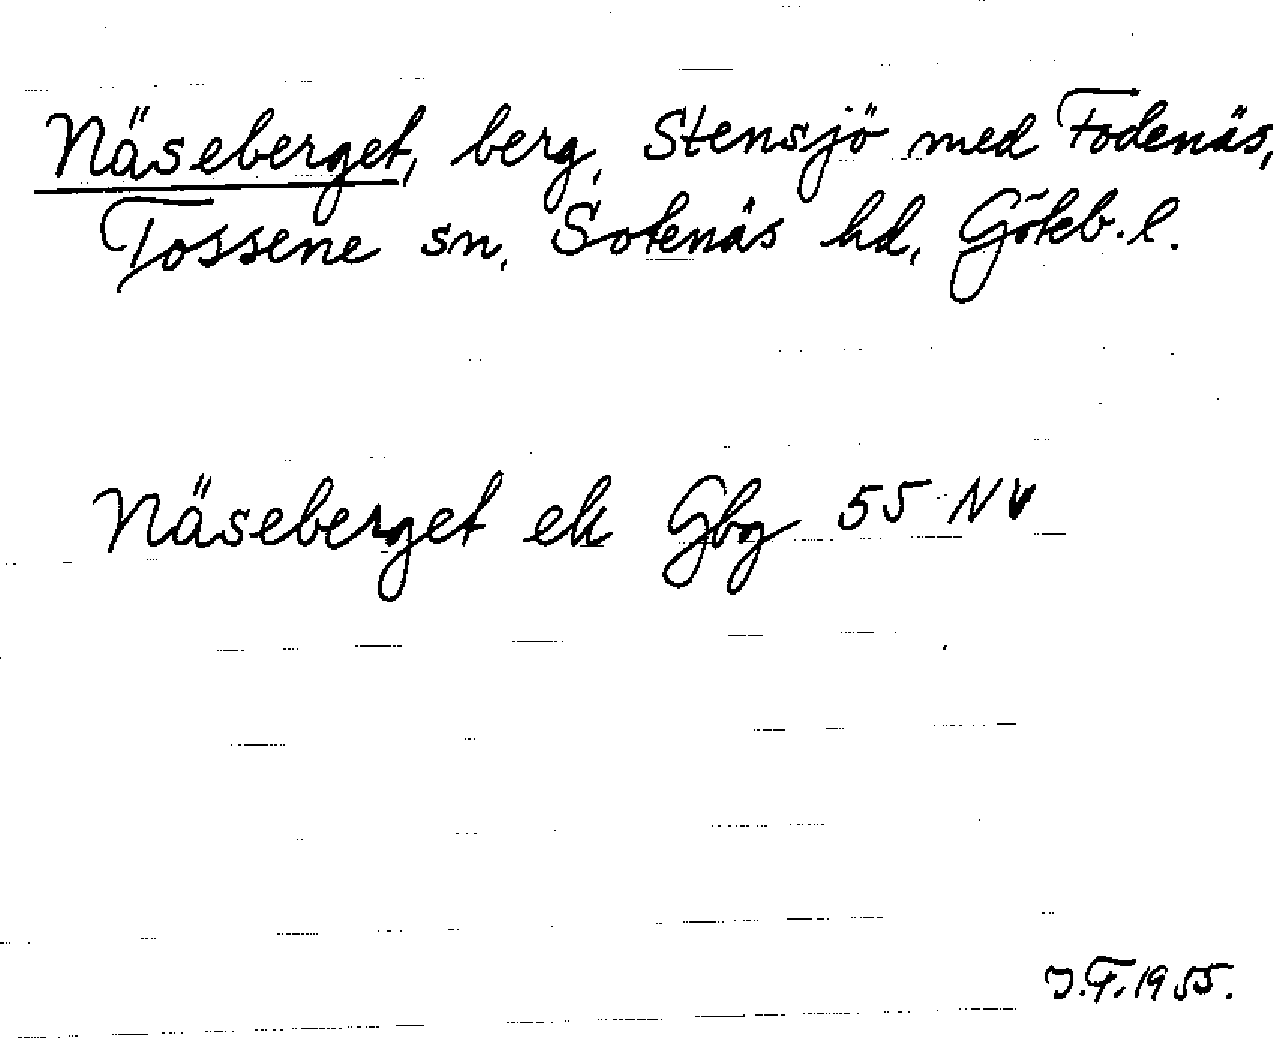 Näseberget, berg, Stensjö med Fodenäs,
Tossene sn, Sotenäs hd, Göteb. l.
Näseberget ek Gbg 55 NV
J.F. 1955.